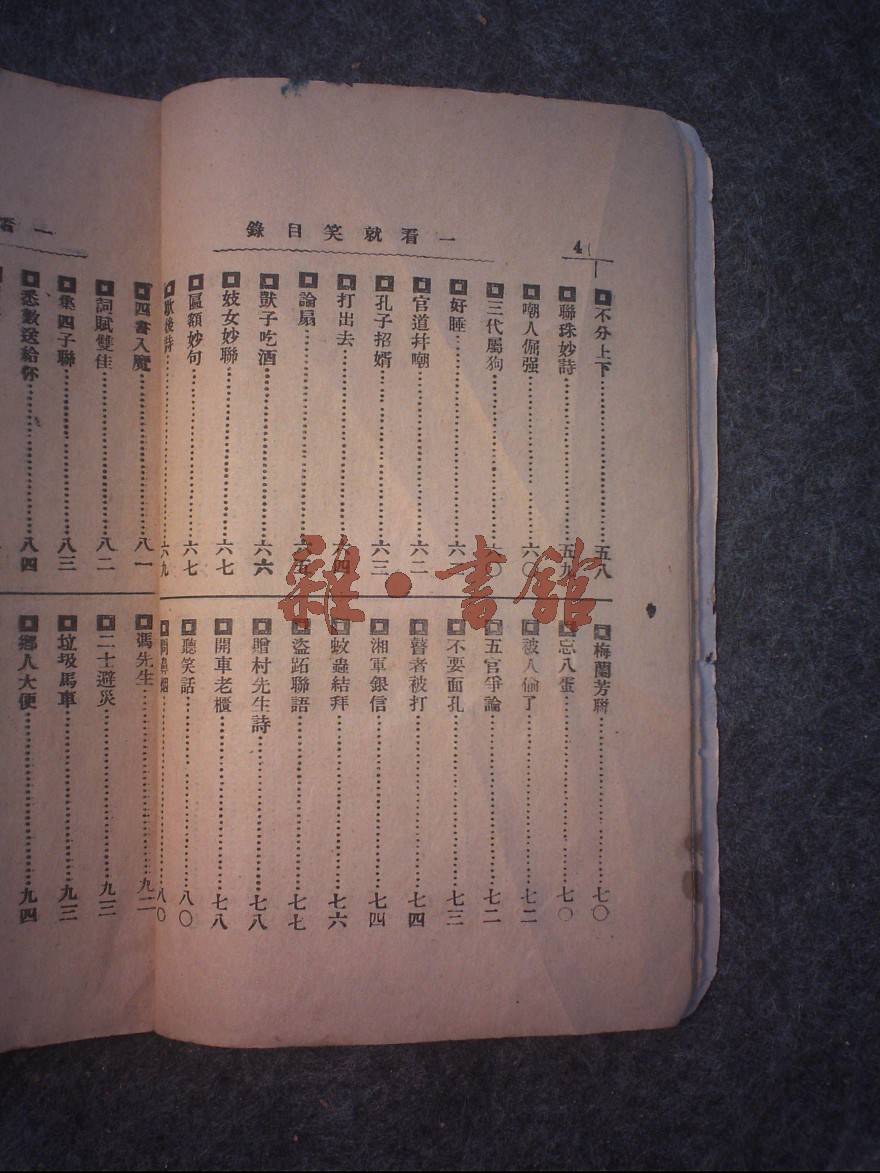 一看就笑目錄
4
不分上下 五八
聯珠妙詩 五九
嘲人倔强 六〇
三代屬狗 六〇
好睡 六二
官道幷嘲 六二
孔子招婿 六三
打出去 六四
論扇 六五
獃子吃酒 六六
妓女妙聯 六七
匾額妙句 六七
歇後詩 六九
梅蘭芳聯 七〇
忘八蛋 七〇
被人偷了 七二
五官爭論 七二
不要面孔 七三
瞽者被打 七四
湘軍銀信 七四
蚊蟲結拜 七六
盜跖聯語 七七
贈村先生詩 七八
開車老櫃 七八
聽笑話 八〇
八〇
一看
四書入魔 八一
詞賦雙佳 八二
集四子聯 八三
悉數送給你 八四
馮先生 九二
二十避災 九三
垃圾馬車 九三
鄉人大便 九四
雜·書館